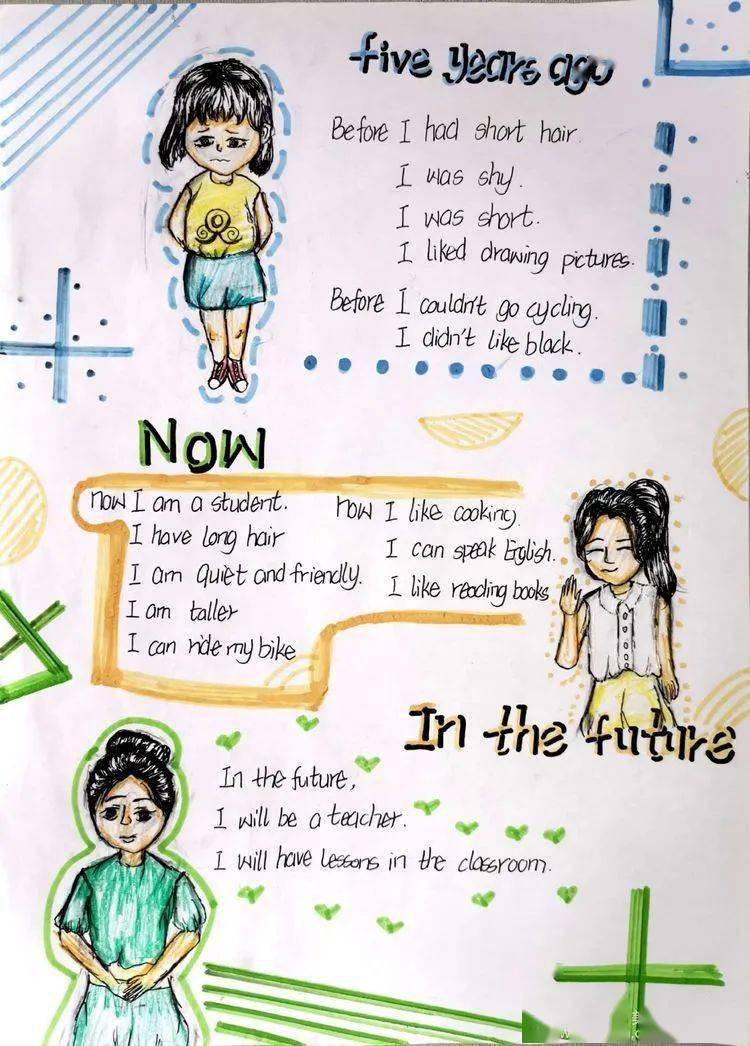 five years ago
Before I had short hair.
I was shy.
I was short.
I liked drawing pictures.
Before I couldn't go cycling.
I didn't like black.
Now
now I am a student.
I have long hair
I am quiet and friendly.
I am taller
I can ride my bike
now I like cooking.
I can speak English.
I like reading books
In the future
In the future,
I will be a teacher.
I will have lessons in the classroom.